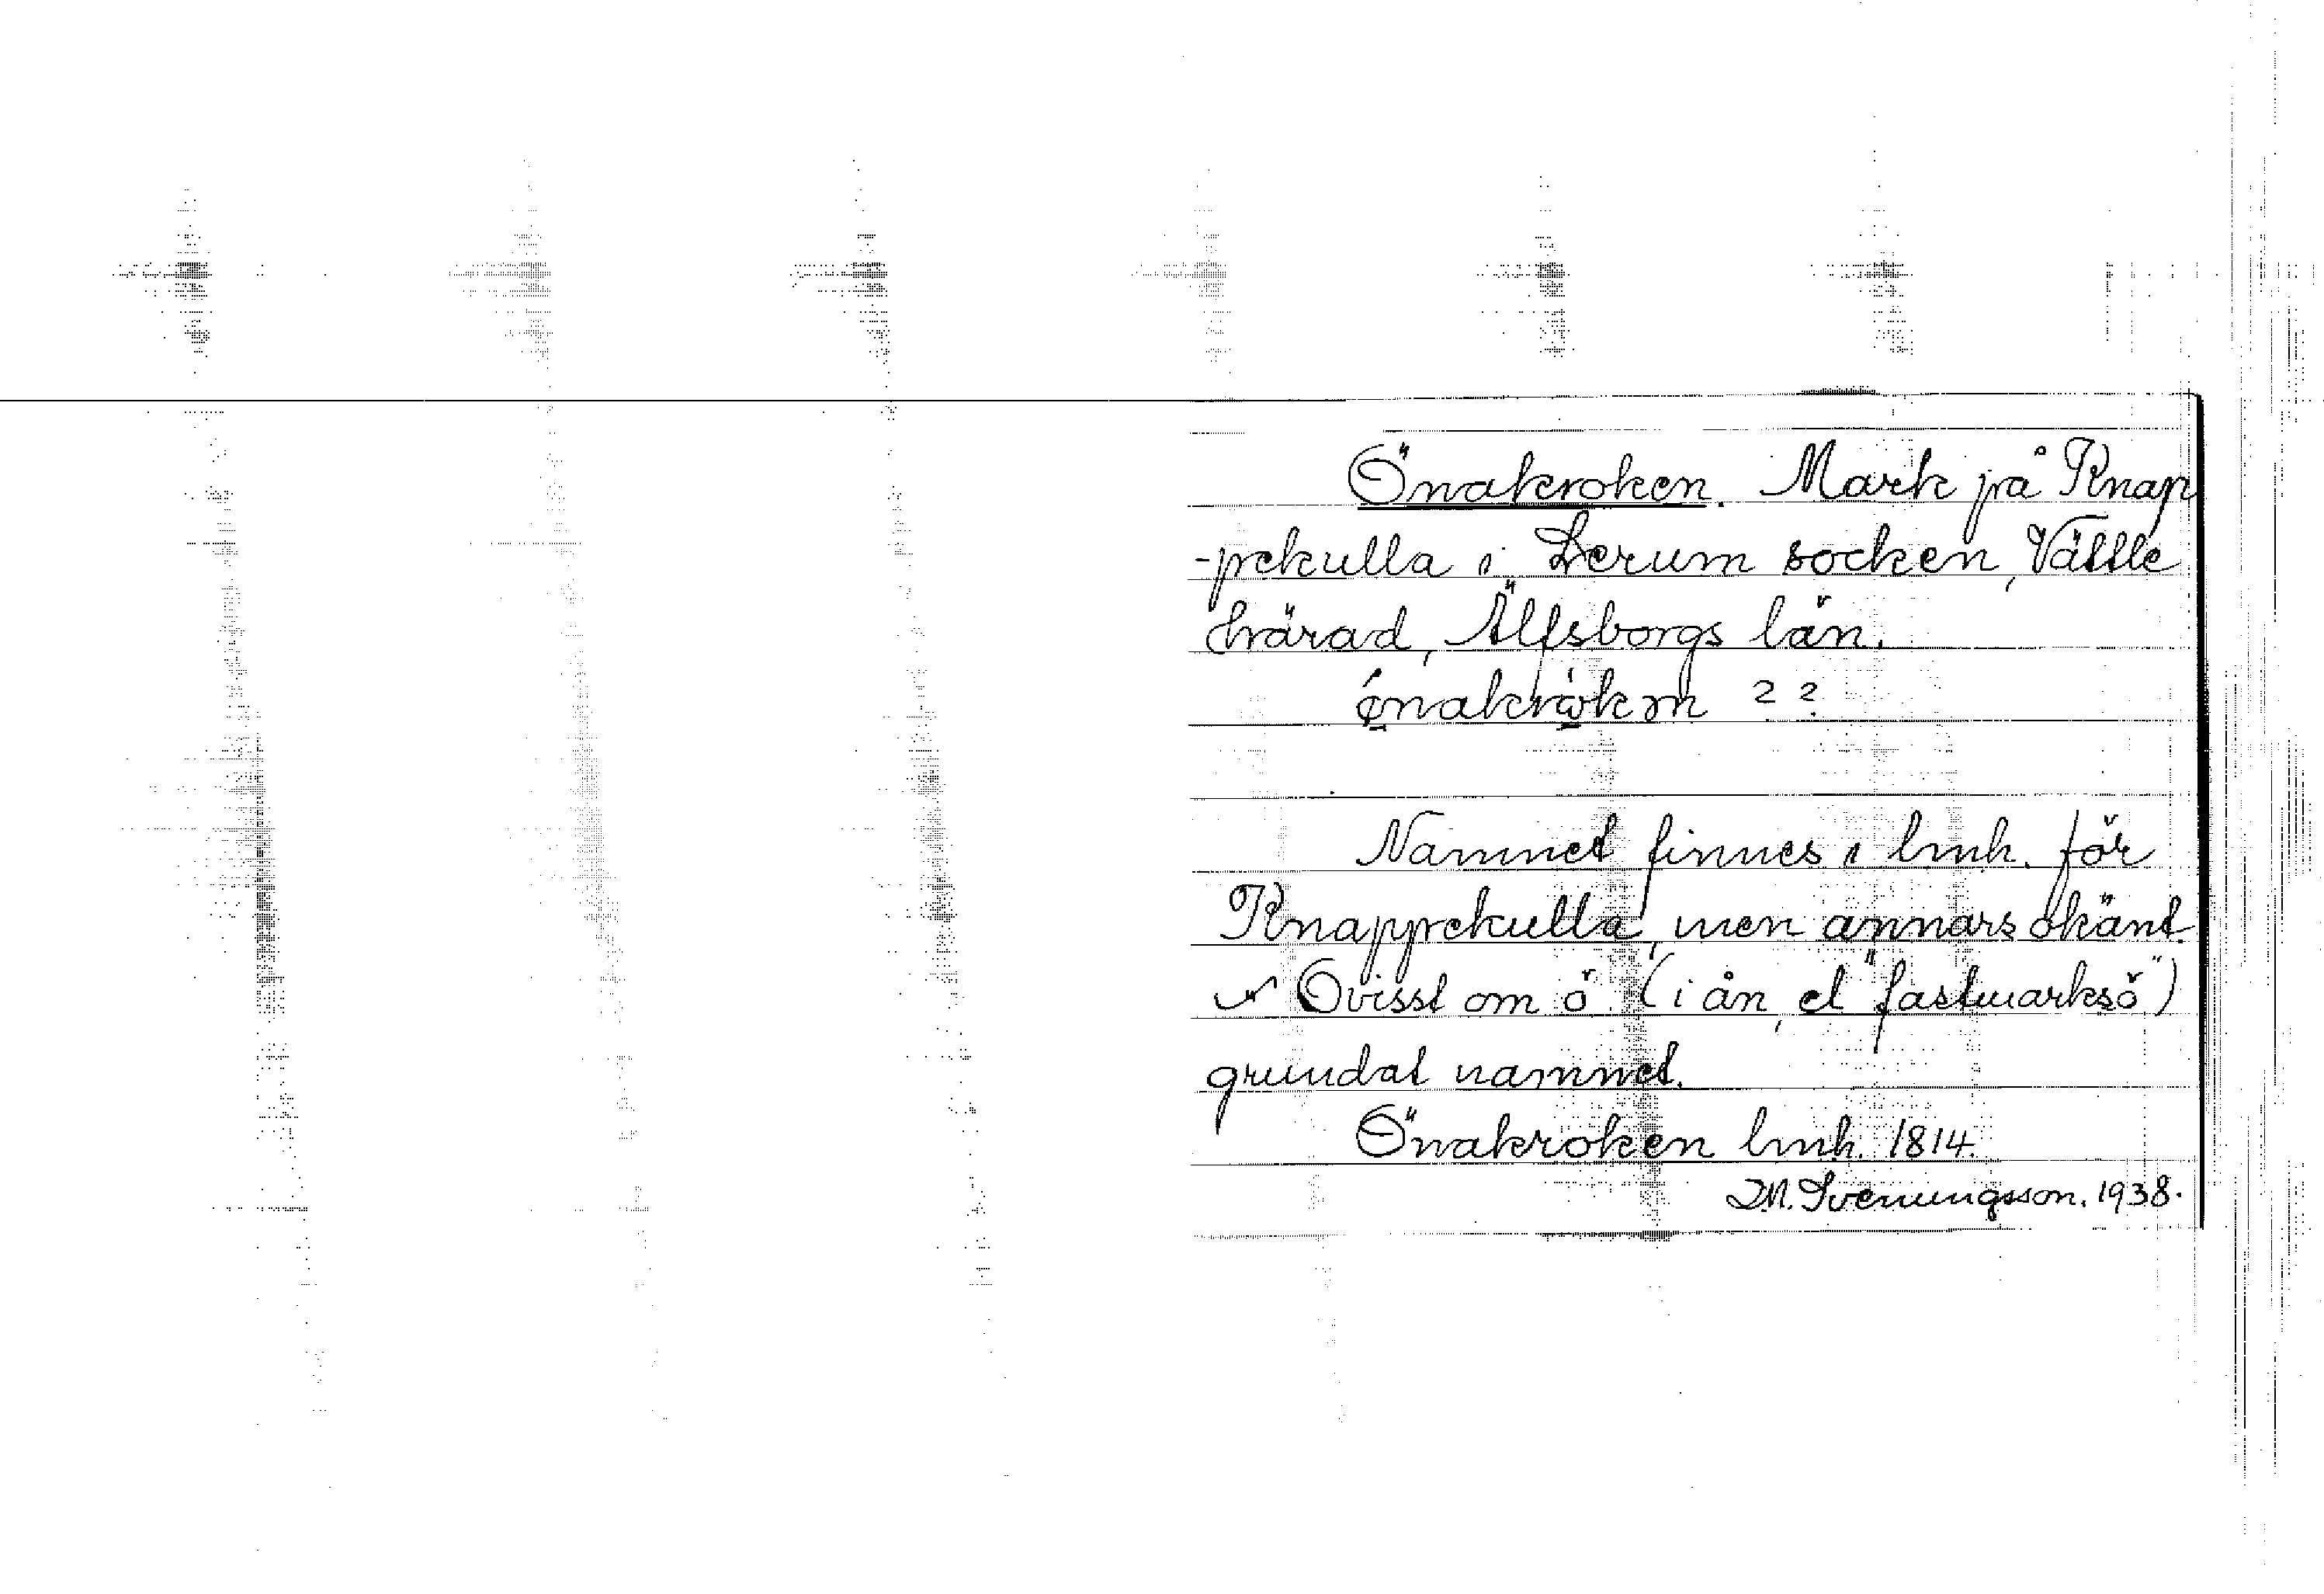 Önakroken. Mark på Knap
-pekulla i Lerum socken, Vättle
härad, Älfsborgs län.
ǿnakrωkɘn ??
Namnet finnes i lmh. för
Knappekulla, men annars okänt.
Ovisst om ö (i ån, el "fastmarksö")
grundat namnet.
Önakroken lmh. 1814.
D.M. Svenungsson. 1938.